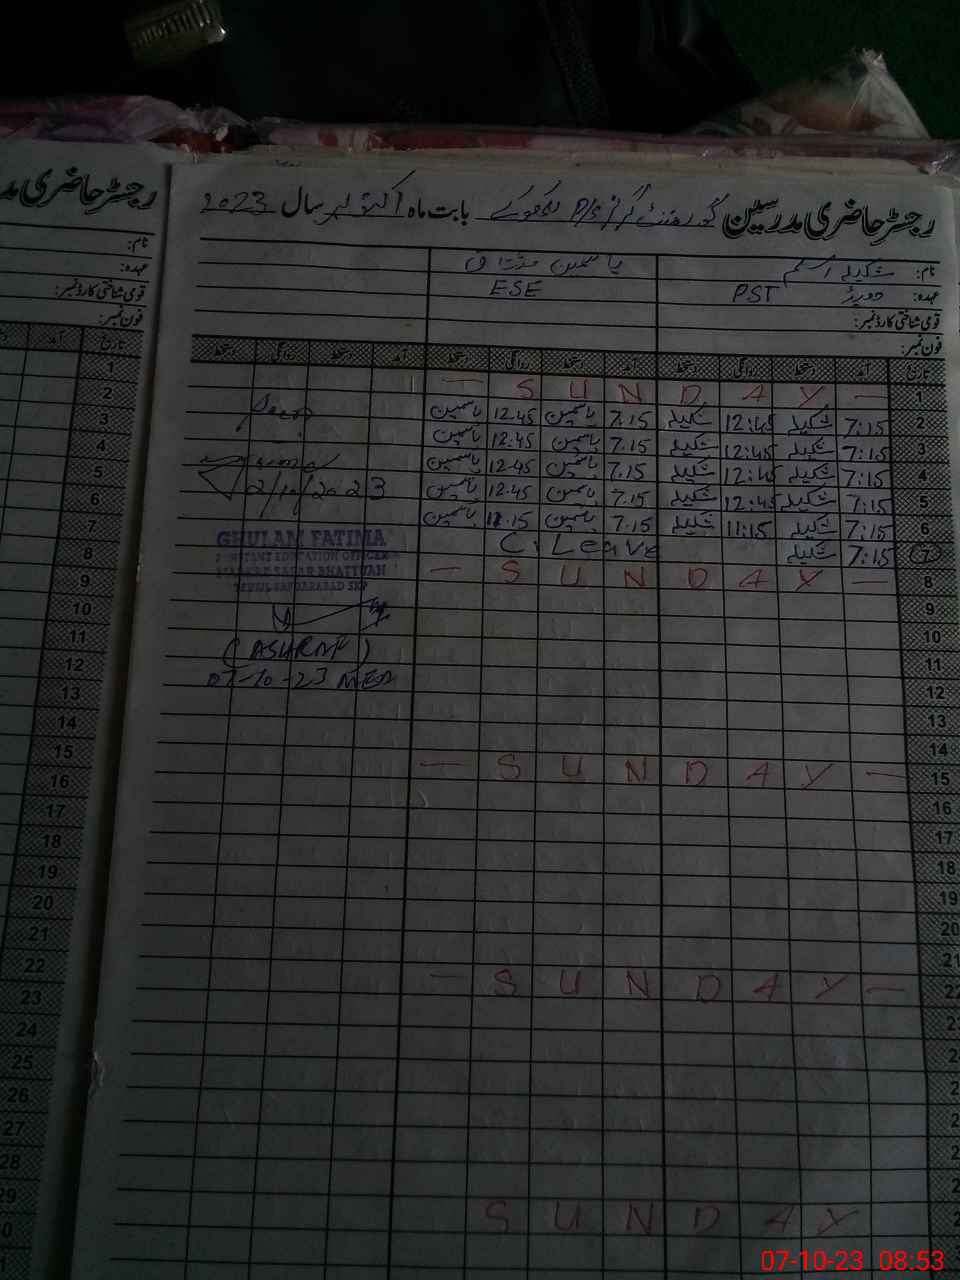 رجسٹر حاضری مدرسین گورنمنٹ گرلز P/S بابت ماہ اکتوبر سال 2023
رجسٹر حاضری مد
نام: شکیلہ اسلم یاسمین مشتاق
عہدہ: PST ESE
قومی شناختی کارڈ نمبر:
فون نمبر:
نام:
عہدہ:
قومی شناختی کارڈ نمبر:
فون نمبر:
تاریخ آمد دستخط روانگی دستخط آمد دستخط روانگی دستخط آمد دستخط روانگی دستخط
1 — S U N D A Y —
2 7:15 شکیلہ 12:45 شکیلہ 7.15 یاسمین 12.45 یاسمین
3 7:15 شکیلہ 12:45 شکیلہ 7.15 یاسمین 12.45 یاسمین
4 7:15 شکیلہ 12:45 شکیلہ 7.15 یاسمین 12.45 یاسمین
5 7:15 شکیلہ 12:45 شکیلہ 7.15 یاسمین 12.45 یاسمین
6 7:15 شکیلہ 11:15 شکیلہ 7.15 یاسمین 11.15 یاسمین
7 7:15 شکیلہ C. Leave
8 — S U N D A Y —
9
10
11
12
13
14
15 — S U N D A Y —
16
17
18
19
20
21
22 — S U N D A Y —
S U N D A Y
2/10/2023
GHULAM FATIMA
ASSISTANT EDUCATION OFFICER
MARKAZ SADAR BHATTIAN
TEHSIL SAFDARABAD SKP
(ASHRAF)
07-10-23 MEA
تاریخ آمد
1
2
3
4
5
6
7
8
9
10
11
12
13
14
15
16
17
18
19
20
21
22
23
24
25
26
27
28
29
30
07-10-23 08:53